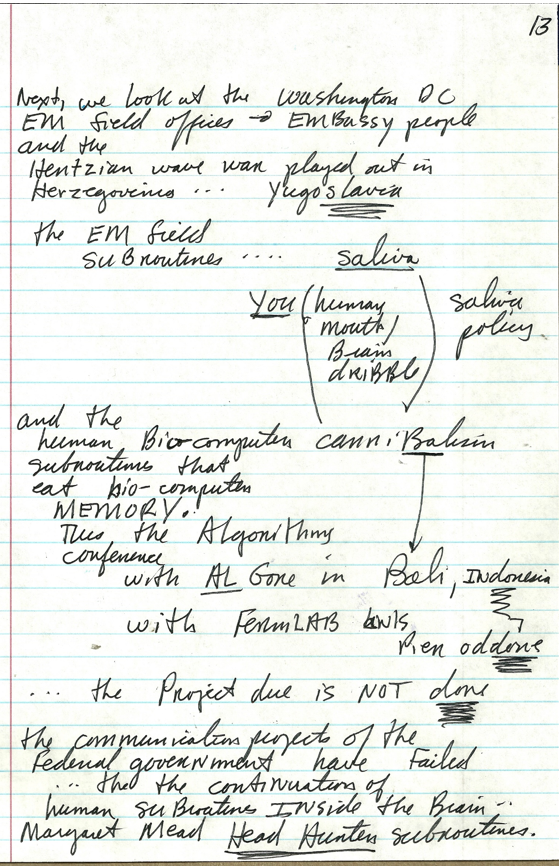 13
Next, we look at the Washington DC
EM field offices → EMBassy people
and the
Hentzian wave war played out in
Herzegovina ... Yugoslavia
the EM field
SUBroutines .... saliva
You (human
mouth/
Brain
dRIBBle)
saliva
policy
and the
human Bio-computer canniBalism
subroutines that
eat bio-computer
MEMORY.
Thus the Algorithms
conference
with AL Gore in Bali, INDonesia
with FermLAB
Pier oddone
... the Project due is NOT done
the communication projects of the
Federal government have Failed
... the the continuation of
human suBroutines INside the Brain..
Margaret Mead Head Hunter subroutines.